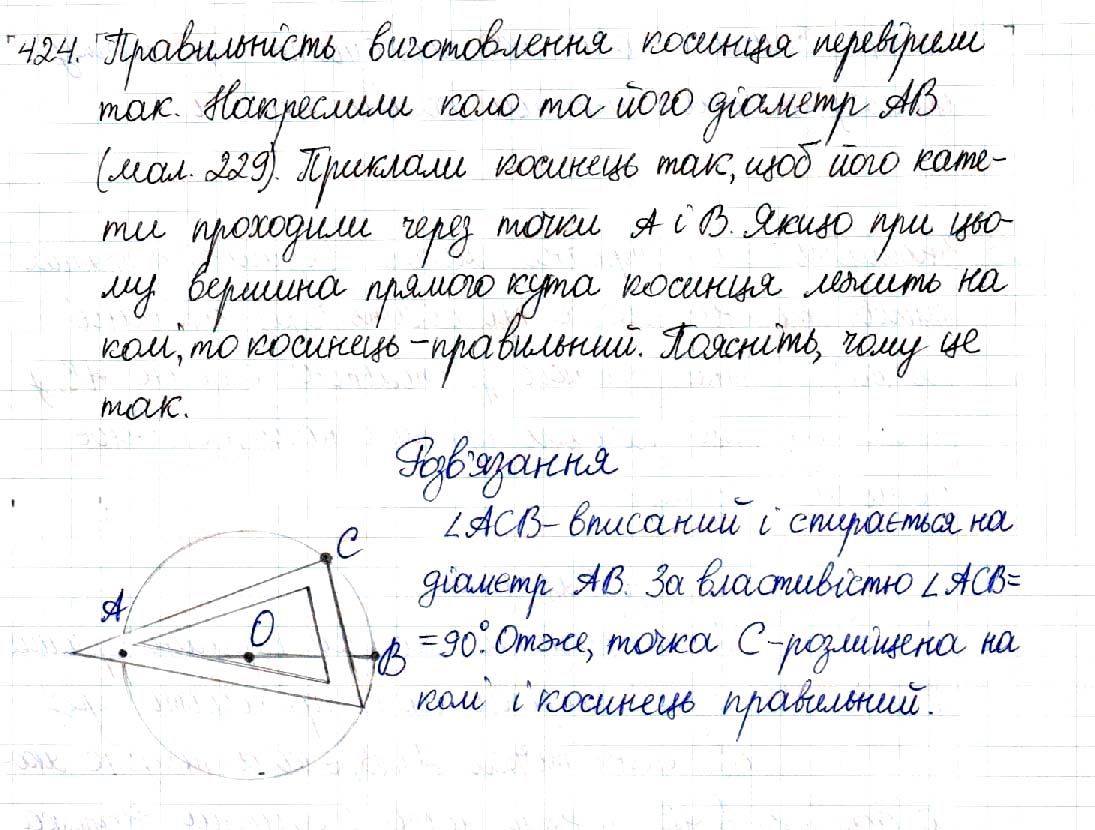 424. Правильність виготовлення косинця перевірили
так. Накреслили коло та його діаметр AB
(мал. 229). Приклали косинець так, щоб його кате-
ти проходили через точки A і B. Якщо при цьо-
му вершина прямого кута косинця лежить на
колі, то косинець – правильний. Поясніть, чому це
так.
Розв'язання
∠ACB – вписаний і спирається на
діаметр AB. За властивістю ∠ACB=
=90°. Отже, точка C – розміщена на
колі і косинець правильний.
C
A
O
B